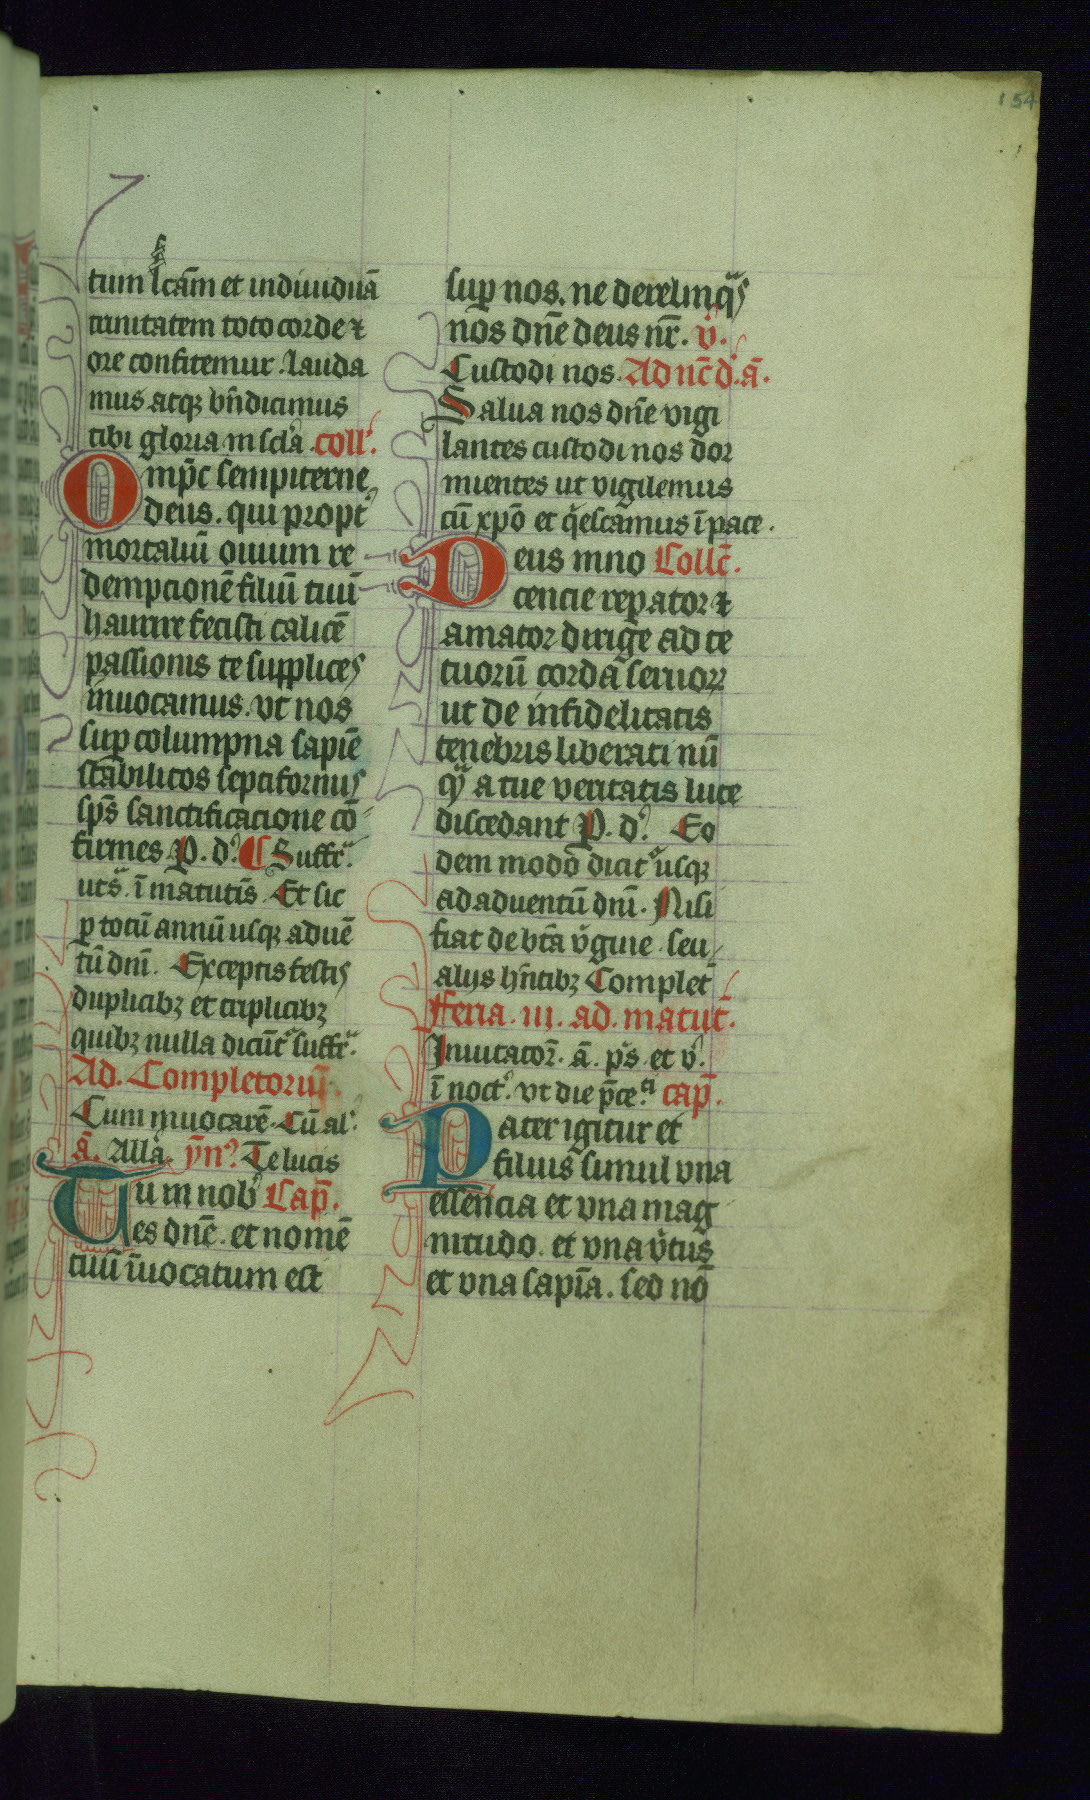 154
tum scām et indiuiduā
trinitatem toto corde et
ore confitemur. lauda
mus atq bn̄dicimus
tibi gloria in scl̄a. coll'.
Omp̄c sempiterne
deus. qui propt'
mortaliū ouium re
dempcionē filiū tuū
haurire fecisti calicē
passionis te supplices
inuocamus. vt nos
sup columpna sapiē
stabilitos septiformis
sp̄s sanctificacione cō
firmes P. d'. Suffr'.
uts̄. ī matutīs. Et sic
p totū annū usq aduē
tū dnī. Exceptis festis
duplicibꝫ et triplicibꝫ
quibꝫ nulla dicūt' suffr'.
Ad. Completoriū.
Cum inuocarē. Cū al'.
ā. All'a. ȳn'. Te lucis
Tu in nob' Cap̄.
es dnē. et nomē
tuū īuocatum est
sup nos. ne derelinq's
nos dn̄e deus nr̄. v̄.
Custodi nos. Ad nc̄ d'. ā.
Salua nos dn̄e vigi
lantes custodi nos dor
mientes ut vigilemus
cū xp̄o et q'escamus ī pace.
Deus inno Collc̄.
cencie repator et
amator dirige ad te
tuorū corda seruoꝝ
ut de infidelitatis
tenebris liberati nū
q' a tue veritatis luce
discedant P. d'. Eo
dem modo dicit' usq
ad aduentū dnī. Nisi
fiat de btā v'gine. seu
alijs hn̄tibꝫ Complet'
Feria. iii. ad. matut̄.
Inuitator̄. ā. p̄s. et v'.
ī noct'. vt die p̄ce. cap̄.
Pater igitur et
filius simul vna
essencia et vna mag
nitudo. et vna v'tus
et vna sapīa. sed nō